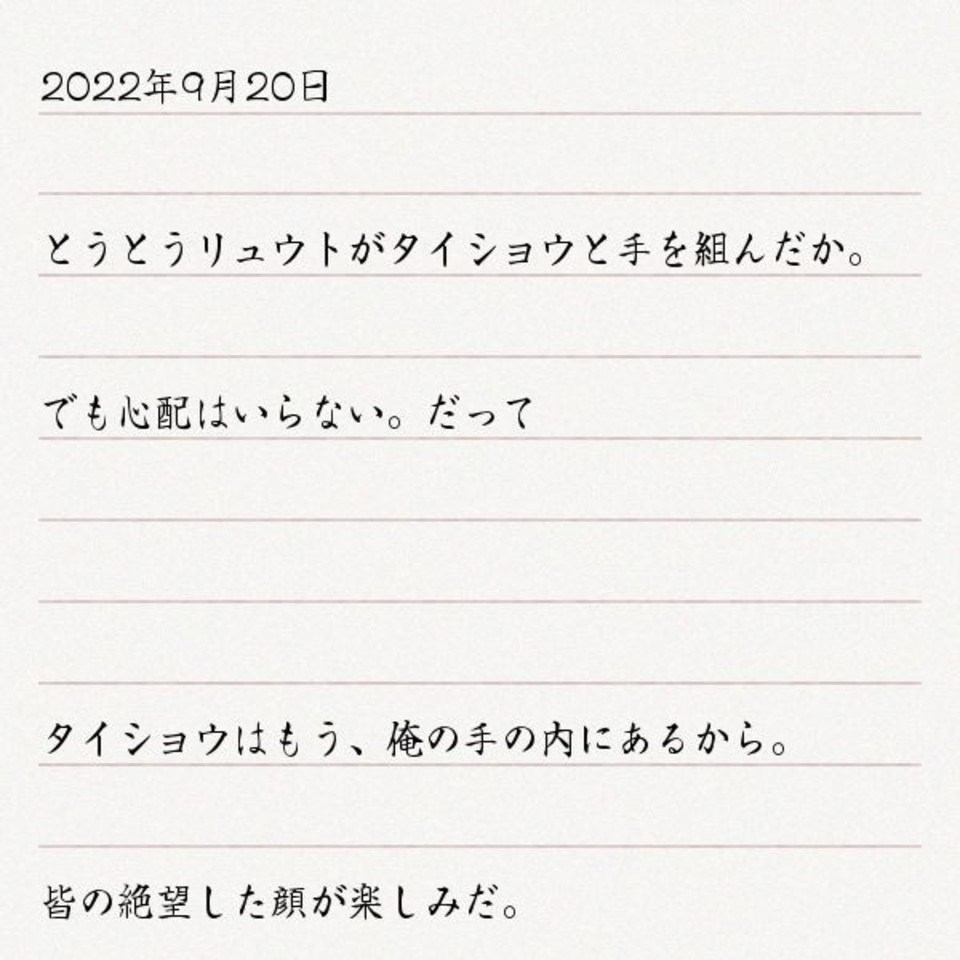 2022年9月20日
とうとうリュウトがタイショウと手を組んだか。
でも心配はいらない。だって
タイショウはもう、俺の手の内にあるから。
皆の絶望した顔が楽しみだ。